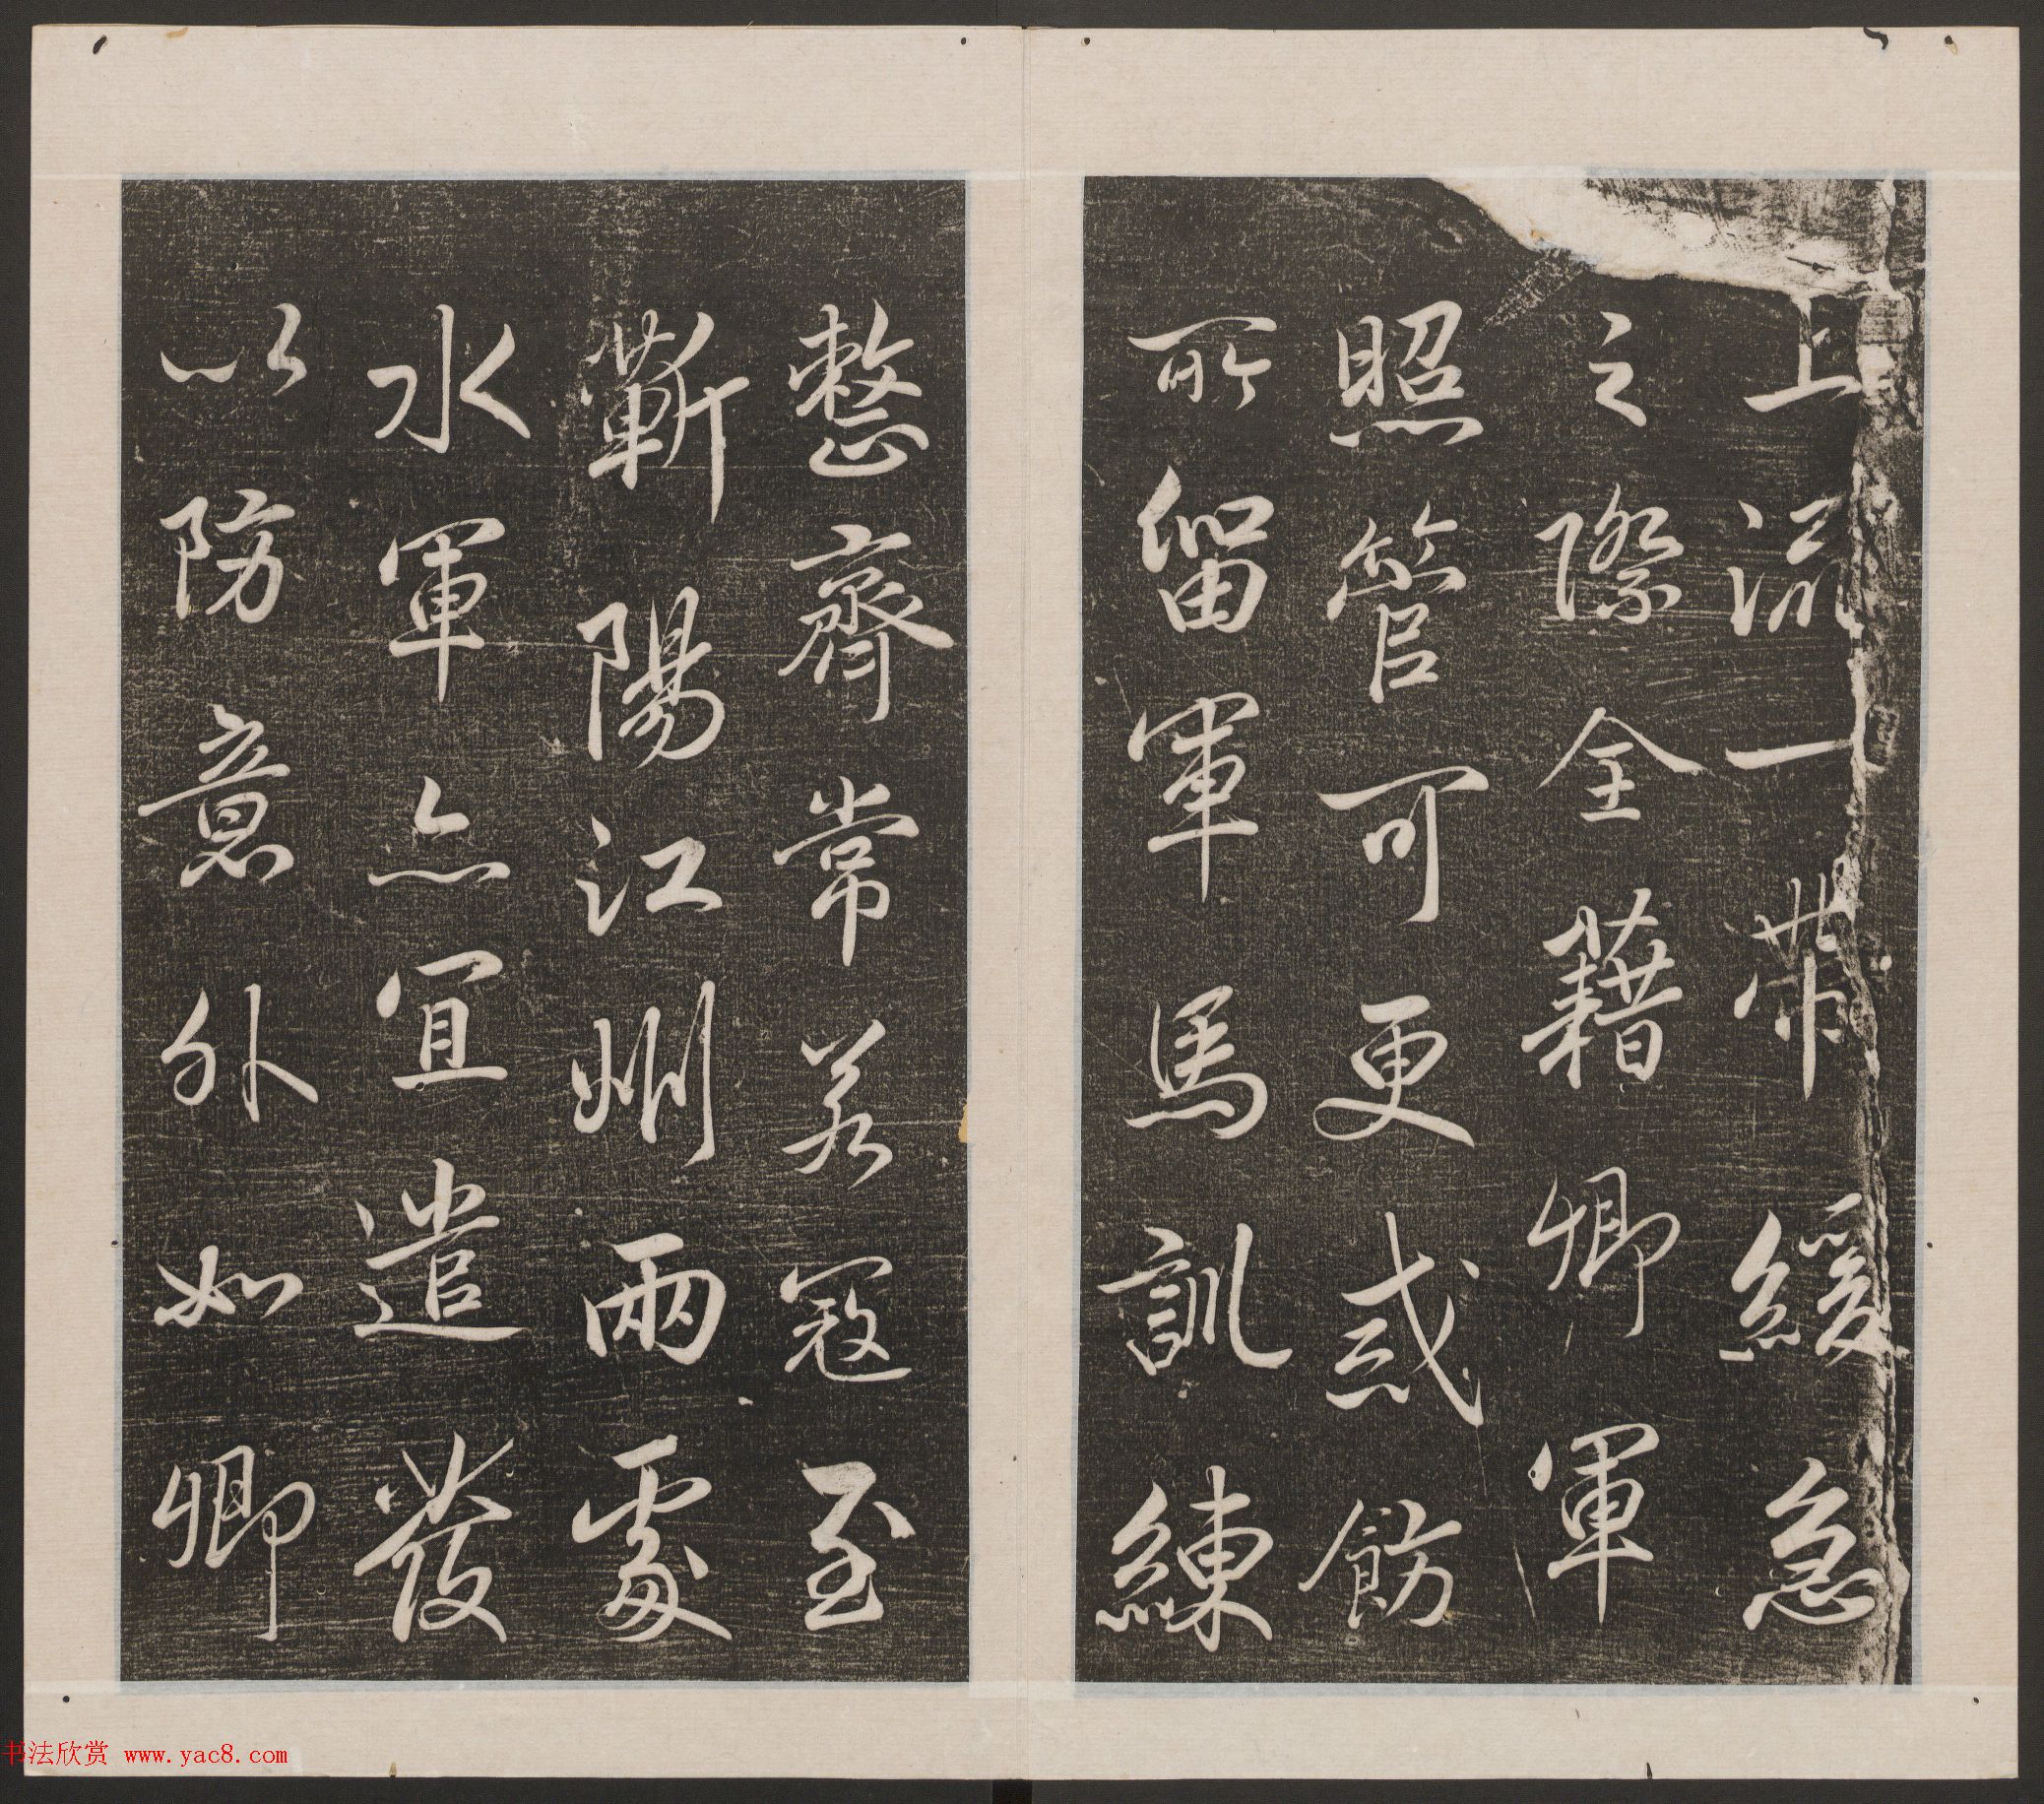 上流一带緩急
之際全藉卿軍
照管可更戒飭
所留軍馬訓練
整齊常若寇至
蘄陽江州兩處
水軍亦宜遣發
以防意外如卿
书法欣赏 www.yac8.com